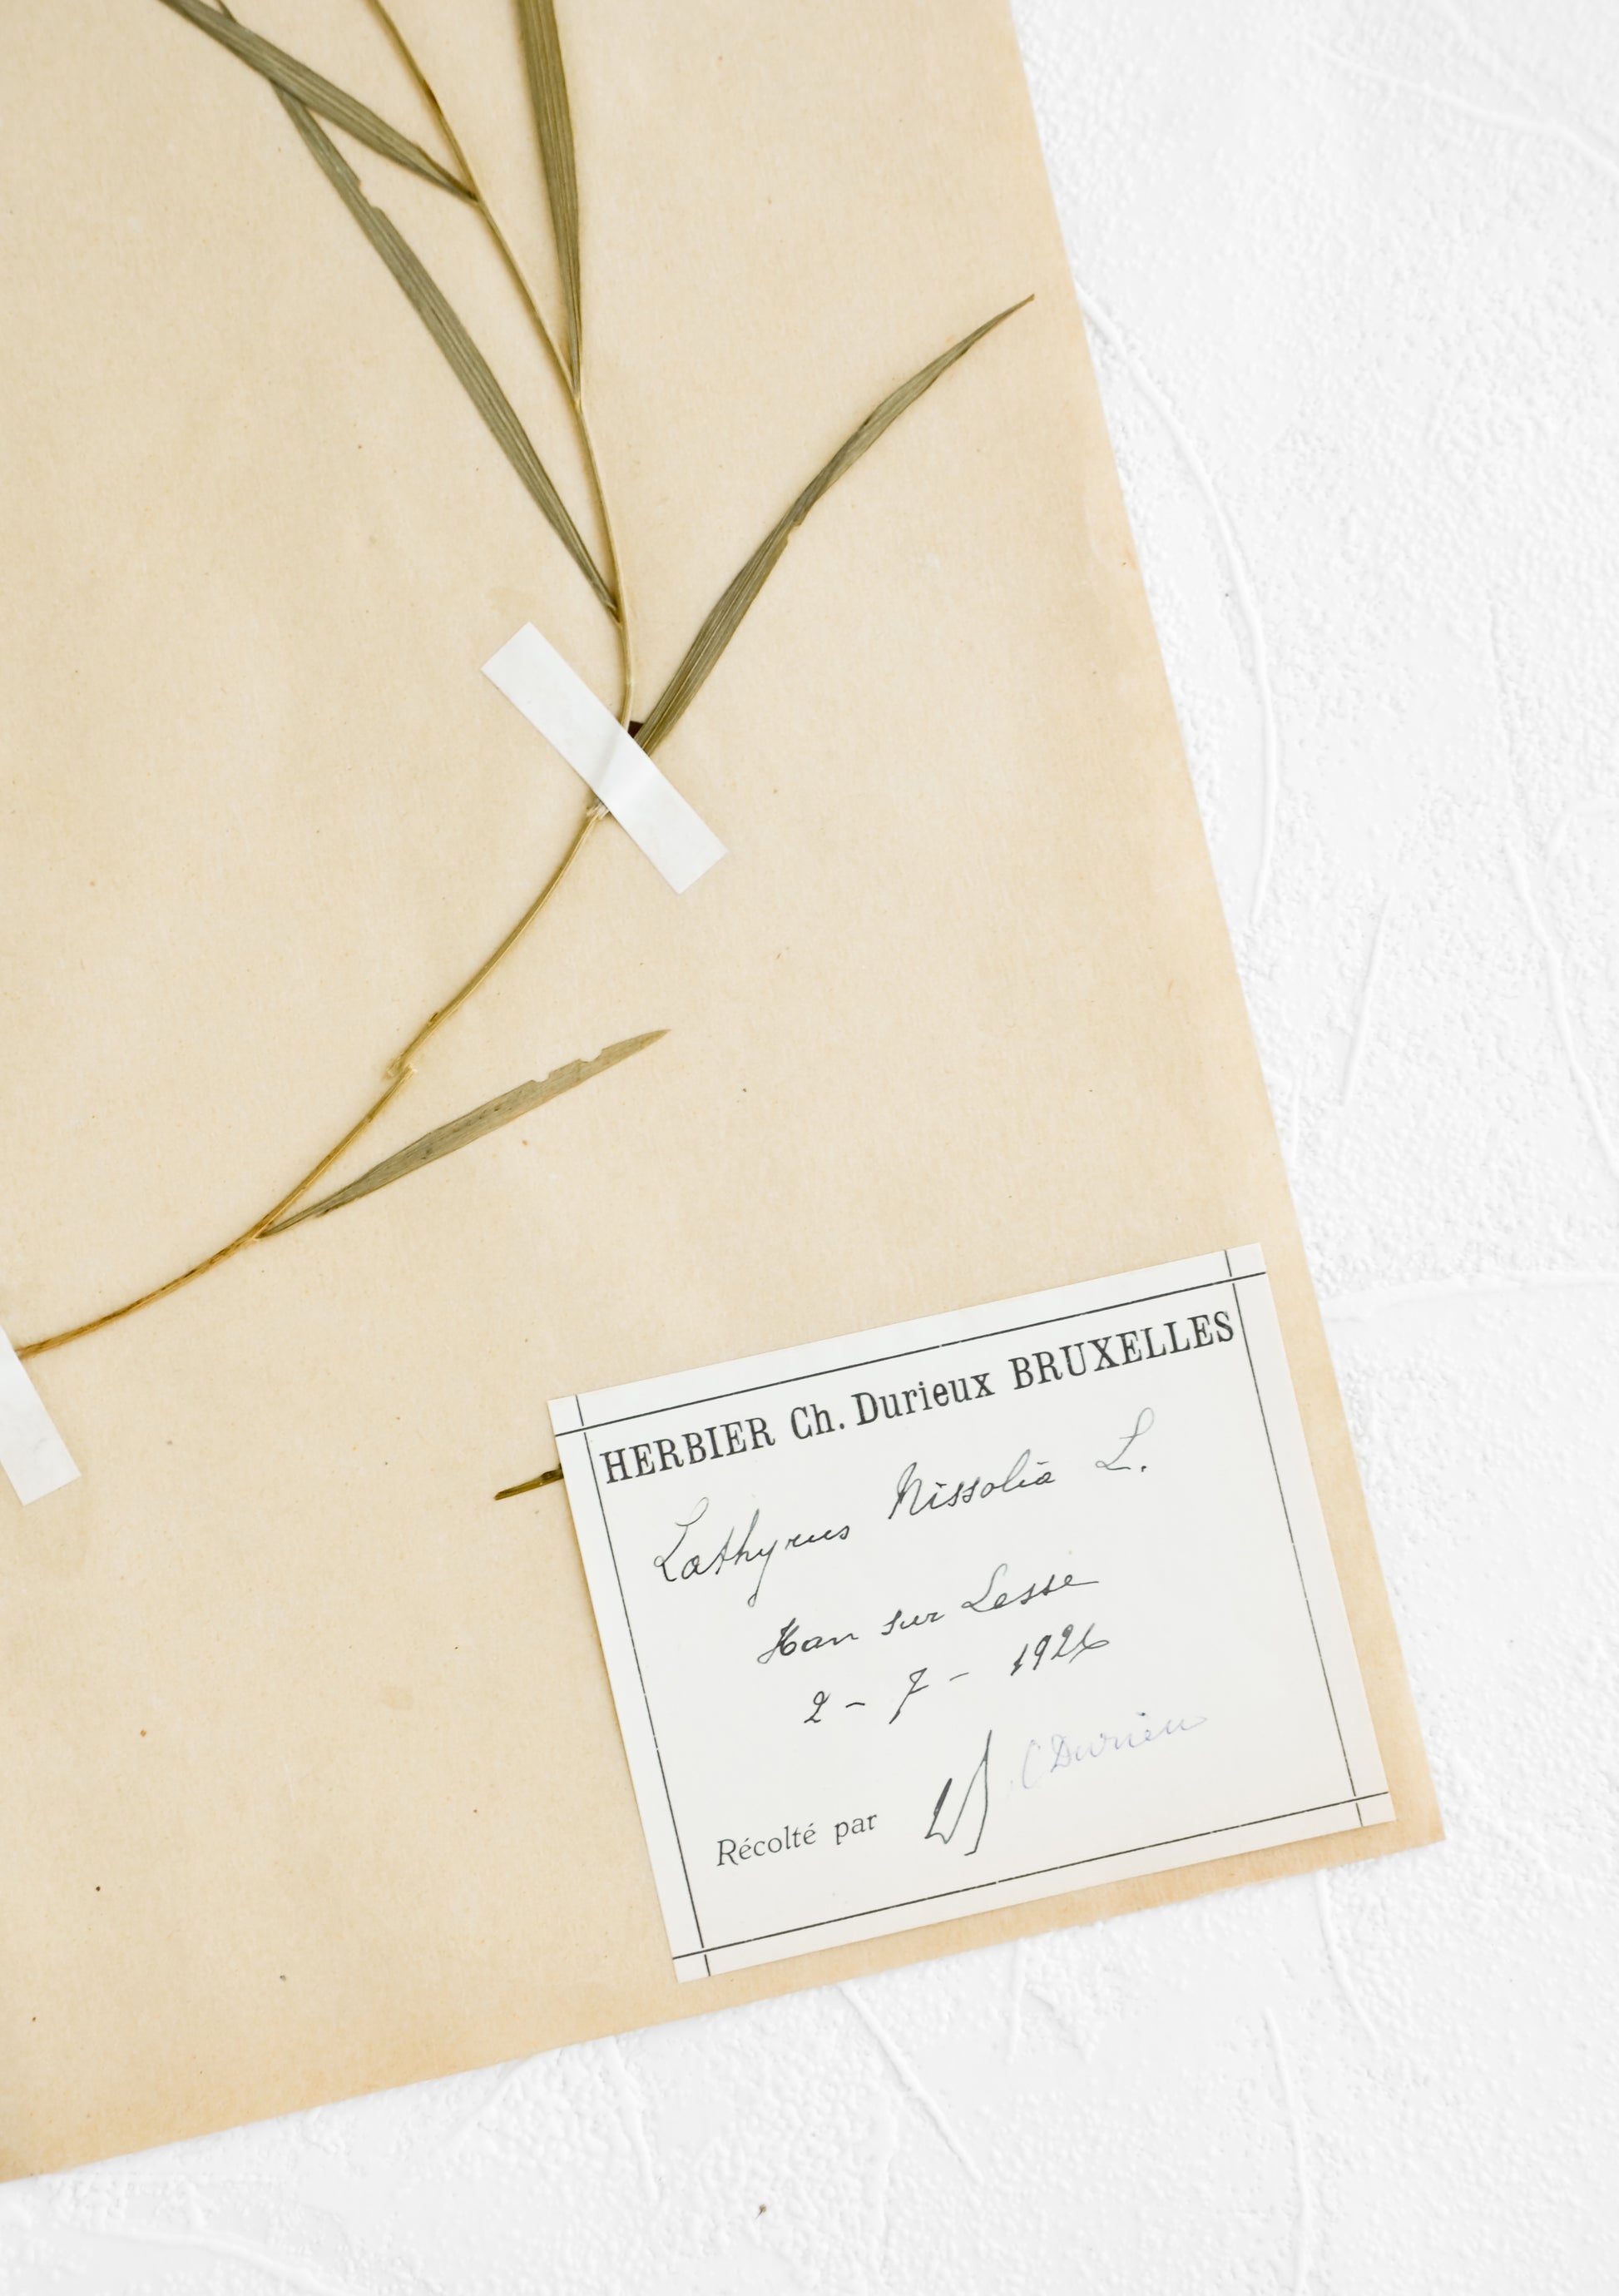 HERBIER Ch. Durieux BRUXELLES
Lathyrus Nissolia L.
Han sur Lesse
2 - 7 - 1926
C Durieu
Récolté par